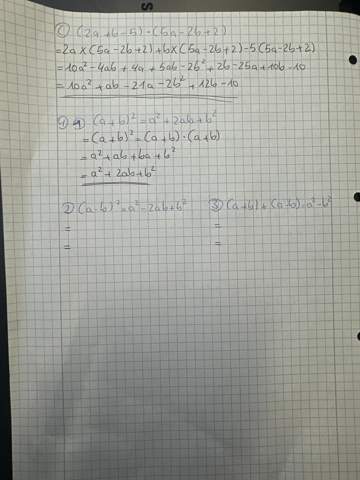 c) (2a+b-5)·(5a-2b+2)
=2a×(5a-2b+2)+b×(5a-2b+2)-5(5a-2b+2)
=10a²-4ab+4a+5ab-2b²+2b-25a+10b-10
=10a²+ab-21a-2b²+12b-10
1) (a+b)²=a²+2ab+b²
=(a+b)²=(a+b)·(a+b)
=a²+ab+ba+b²
=a²+2ab+b²
2) (a-b)²=a²-2ab+b² 3) (a+b)+(a-b)=a²-b²
= =
= =